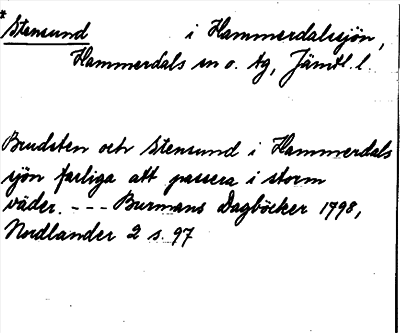 * Stensund i Hammerdalssjön,
Hammerdals sn o. tg, Jämtl. l.
Brudsten och Stensund i Hammerdals
sjön farliga att passera i storm
väder. --- Burmans Dagböcker 1798,
Nordlander 2 s. 97